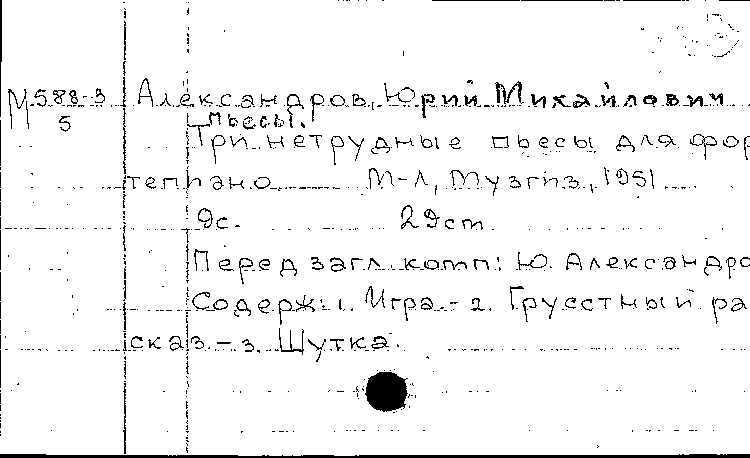 М 588-3 Александров, Юрий Михайлович
5 [Пьесы].
Три нетрудные пьесы для фор
тепиано М-Л, Музгиз, 1951
9с. 29cm
Перед загл. комп: Ю. Александро
Содерж: 1. Игра - 2. Грусстный ра
сказ - 3. Шутка.